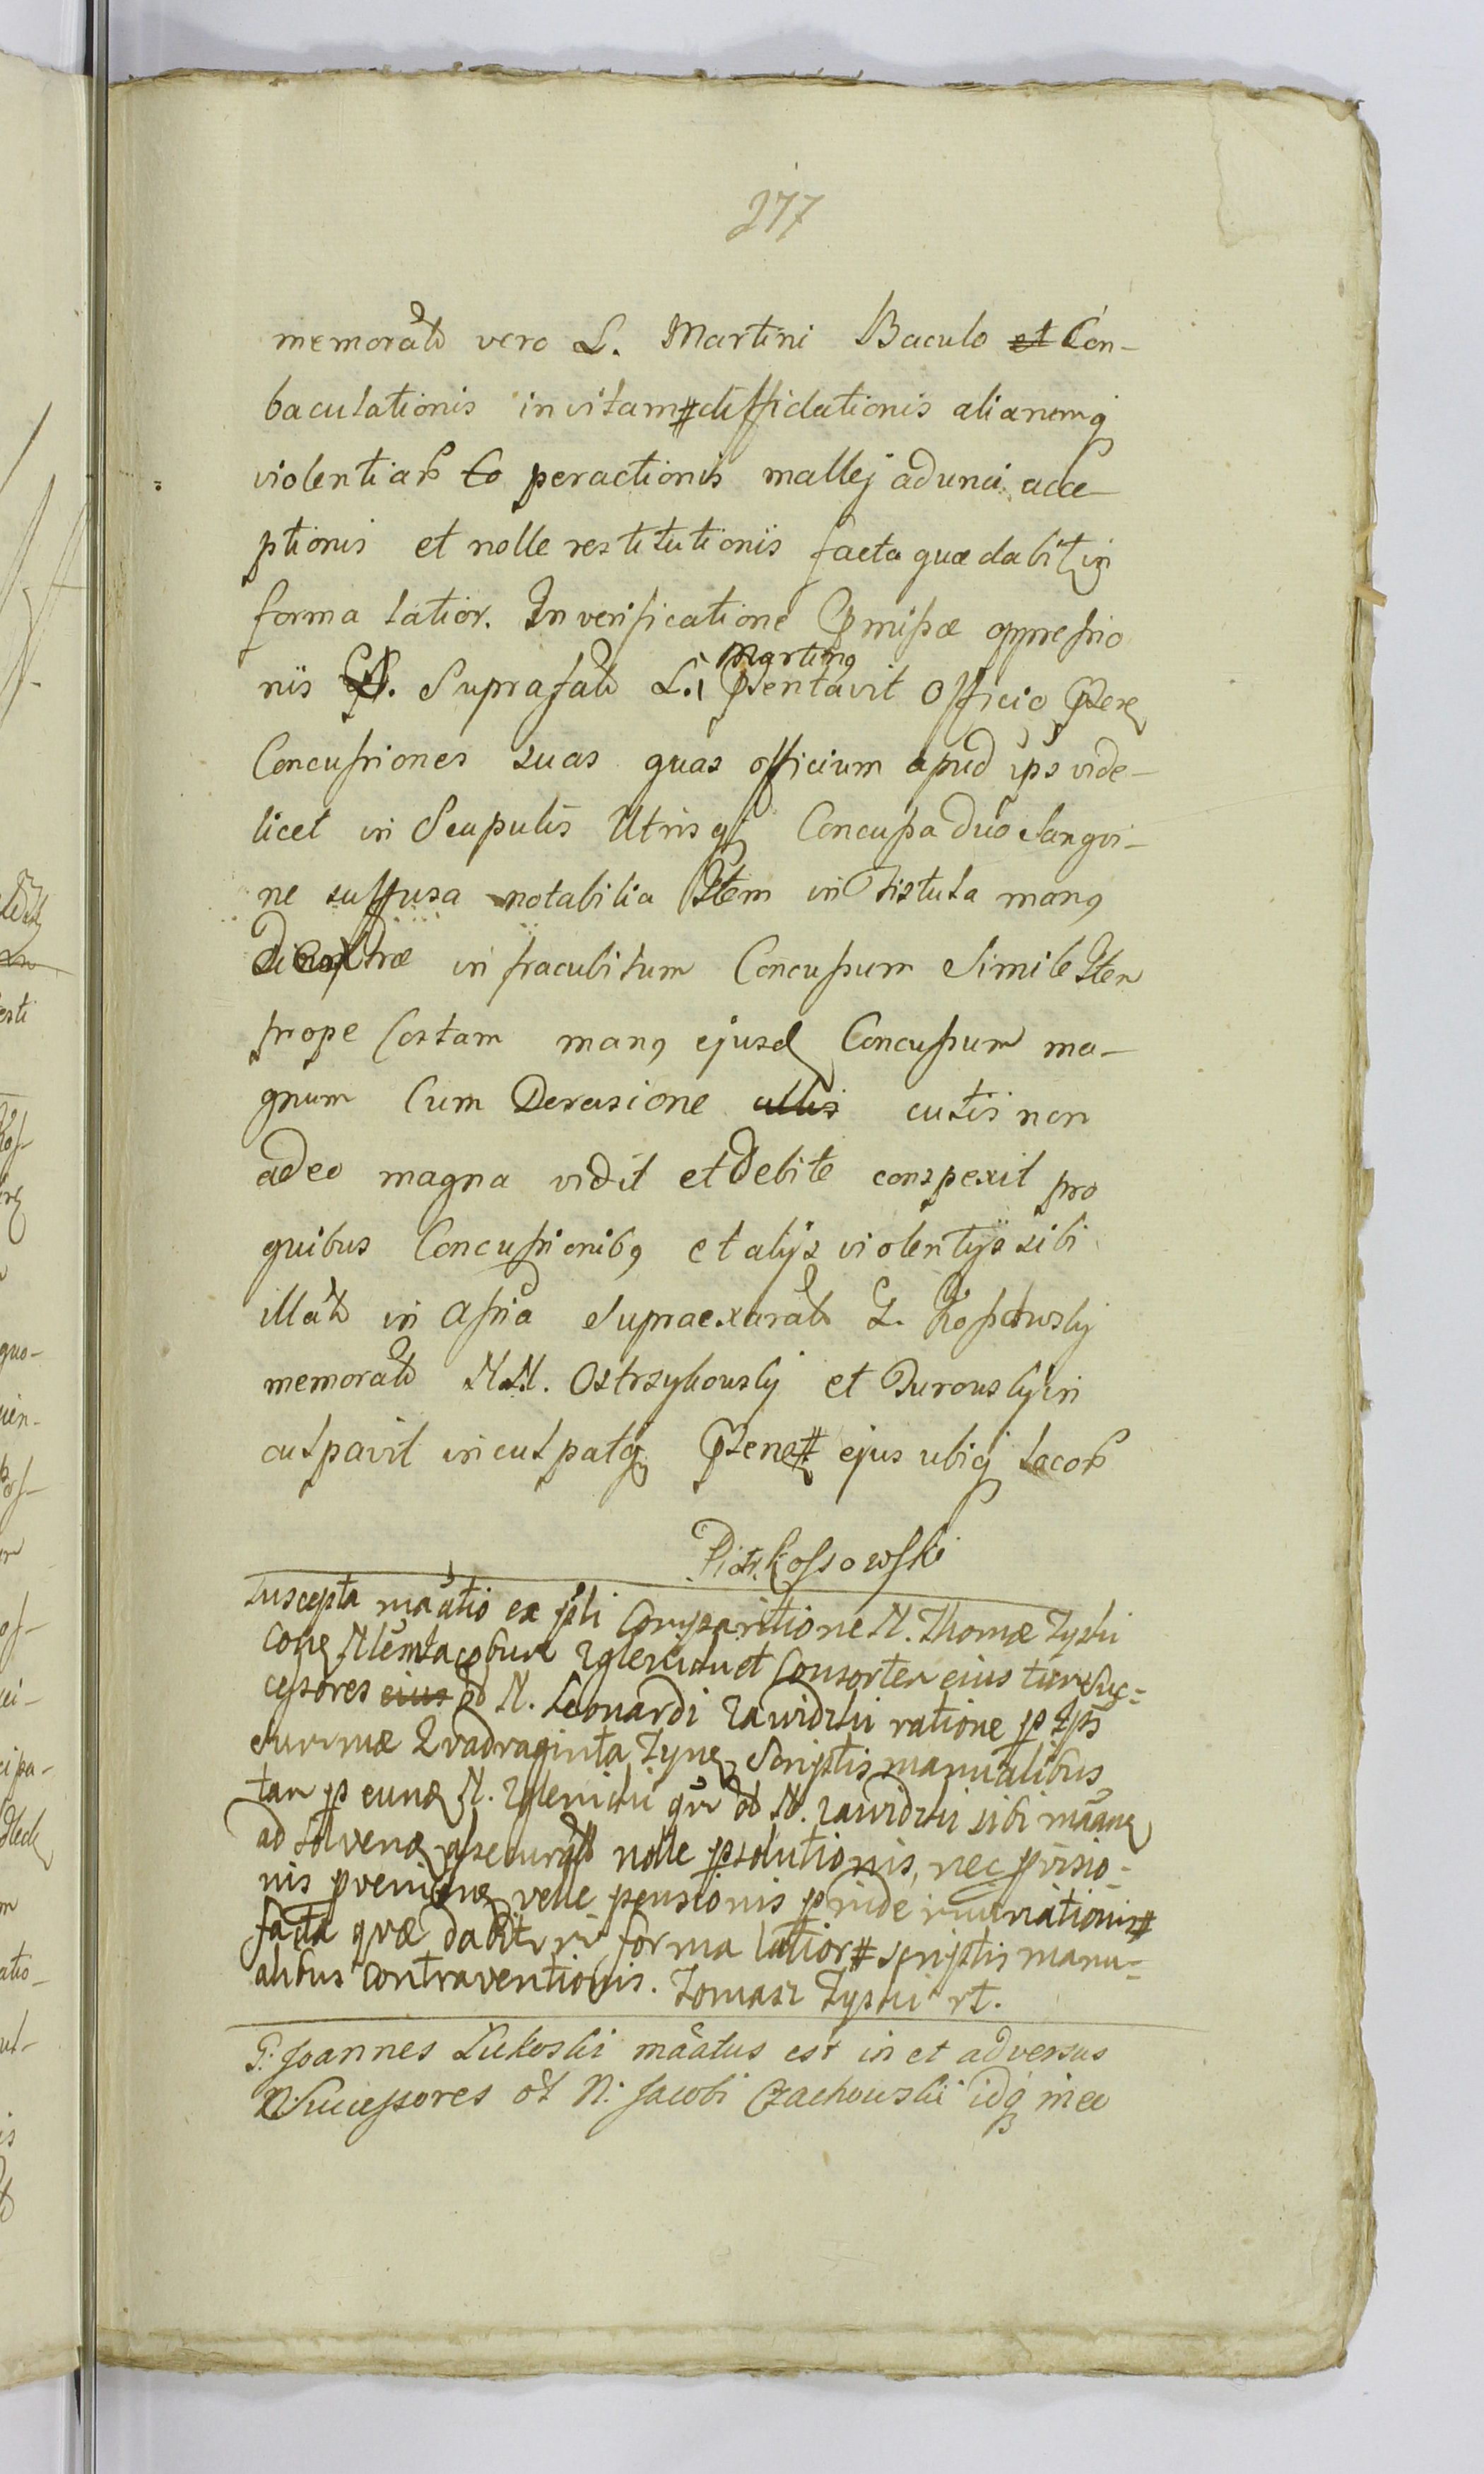 277
memorati vero L. Martini Baculo et Con-
baculationis in vitam # diffidationis aliarumq
violentiar Co peractionis mallej adunci acce-
ptionis et nolle restitutionis facta quæ dabit in
forma latior. In verificatione Pmissæ oppressio
nis Suprafati L. Martinq Psentavit Officio Psens
Concussiones suas quas officium apud ips vide-
licet in Scapulis Utrisq Concussa duo Sangvi-
ne suffusa notabilia Item in fistula manq
Dextræ infra cubitum Concussum Simile Item
prope Costam manq ejusd Concussum ma-
gnum Cum Derasione ullis cutis non
adeo magna vidit et debite conspexit pro
quibus Concussionibq et alijs violentijs sibi
illatis in assia Supraexarat L. Kossowskj
memorat N.N. Ostrzykowskj et Durowskj in
culpavit inculpatq Psens # ejus ubiq Lacor
Piotr Kossowski
Suscepta maatio ex psli Comparitione N. Thomæ Zyski
Cone Nlem Jacobum Zglenicki et Consortem eius tum Suc=
cessores eius od N. Leonardi Zawidzki ratione p ips
summæ Qvadraginta Tyne Scriptis manualibus
tam p eund N. Zglenicki qm od N. Zawidzki sibi maane
ad Solvend assecurat nolle psolutionis, nec pvisio-
nis pveniene velle pensionis pinde iniuriationis #
facta qvæ dabit in forma latior # scriptis manu=
alibus contraventionis. Tomasz Zyski rt.
G: Joannes Lukoski maatus est in et adversus
N. Successores ot N: Jacobi Czachowski idq in eo